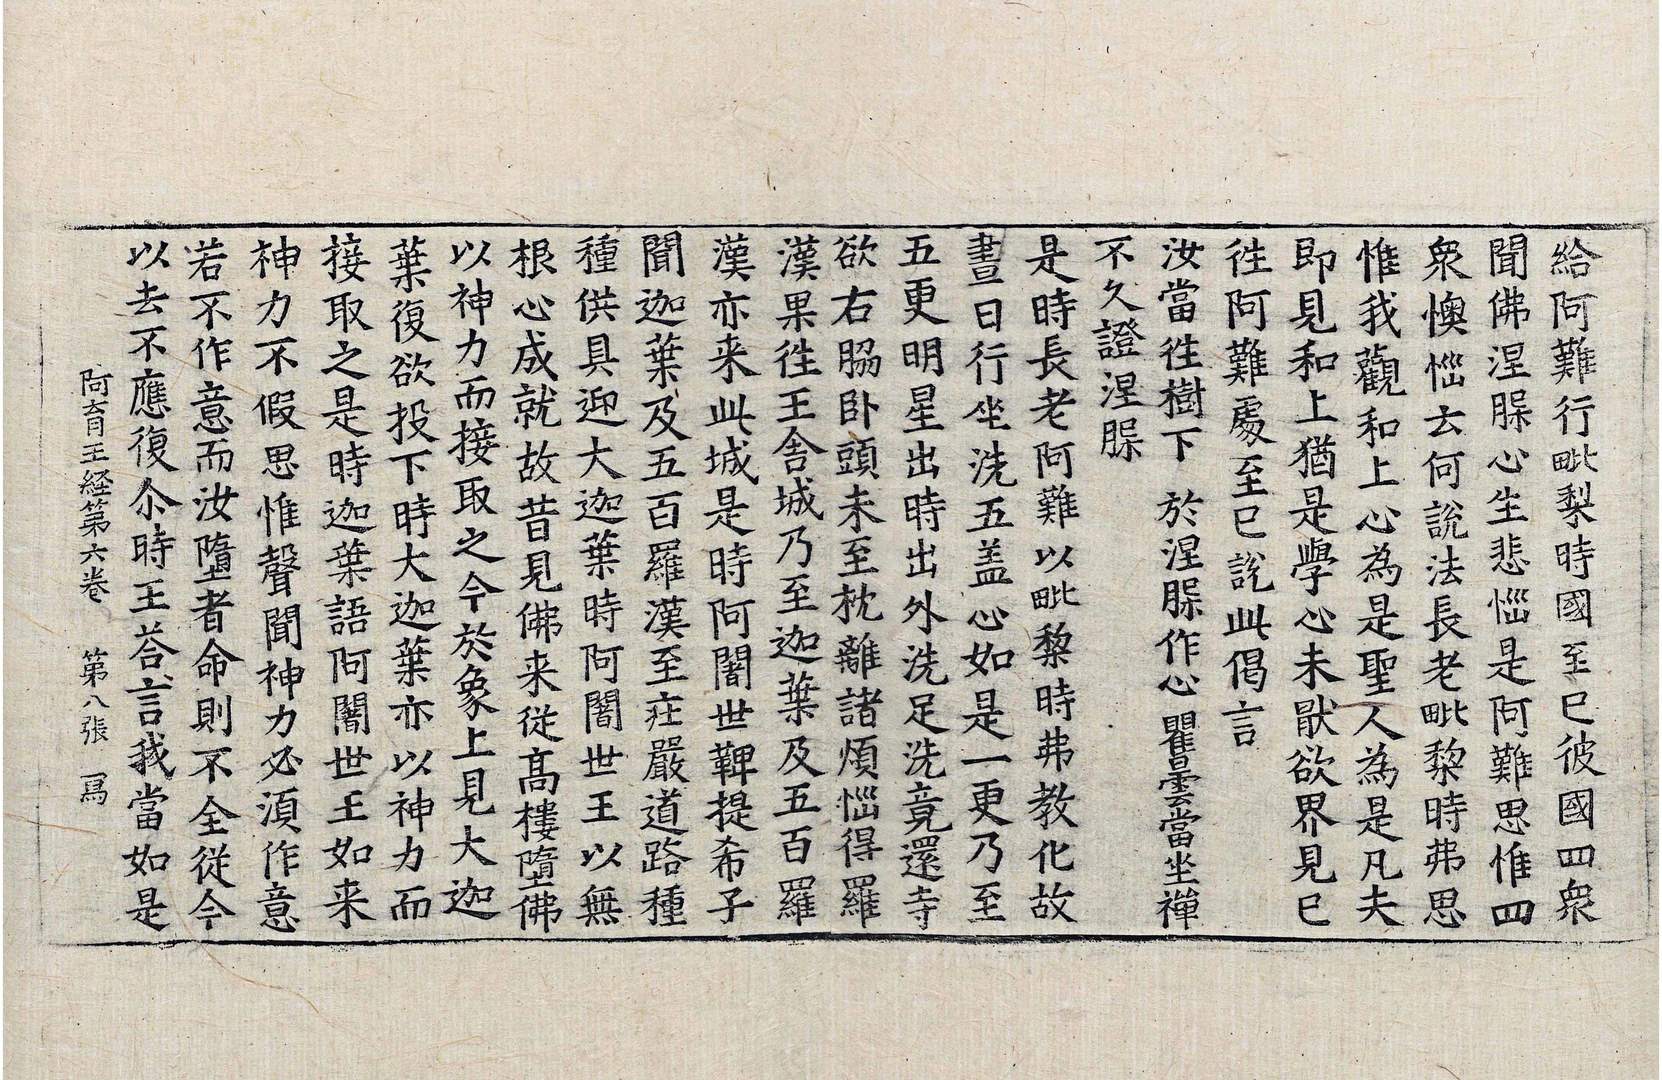 給阿難行毗梨時國至已彼國四衆
聞佛涅槃心生悲惱是阿難思惟四
衆懊惱云何説法長老毗黎時弗思
惟我觀和上心為是聖人為是凡夫
即見和上猶是學心未猒欲界見已
徃阿難處至已説此偈言
汝當徃樹下　於涅槃作心　瞿曇當坐禪
不久證涅槃
是時長老阿難以毗黎時弗教化故
晝日行坐洗五盖心如是一更乃至
五更明星出時出外洗足洗竟還寺
欲右脇卧頭未至枕離諸煩惱得羅
漢果徃王舍城乃至迦葉及五百羅
漢亦来此城是時阿闍世鞞提希子
聞迦葉及五百羅漢至莊嚴道路種
種供具迎大迦葉時阿闍世王以無
根心成就故昔見佛来從髙樓墮佛
以神力而接取之今於象上見大迦
葉復欲投下時大迦葉亦以神力而
接取之是時迦葉語阿闍世王如来
神力不假思惟聲聞神力必須作意
若不作意而汝墮者命則不全從今
以去不應復尒時王荅言我當如是
阿育王経第六卷　第八張　寫